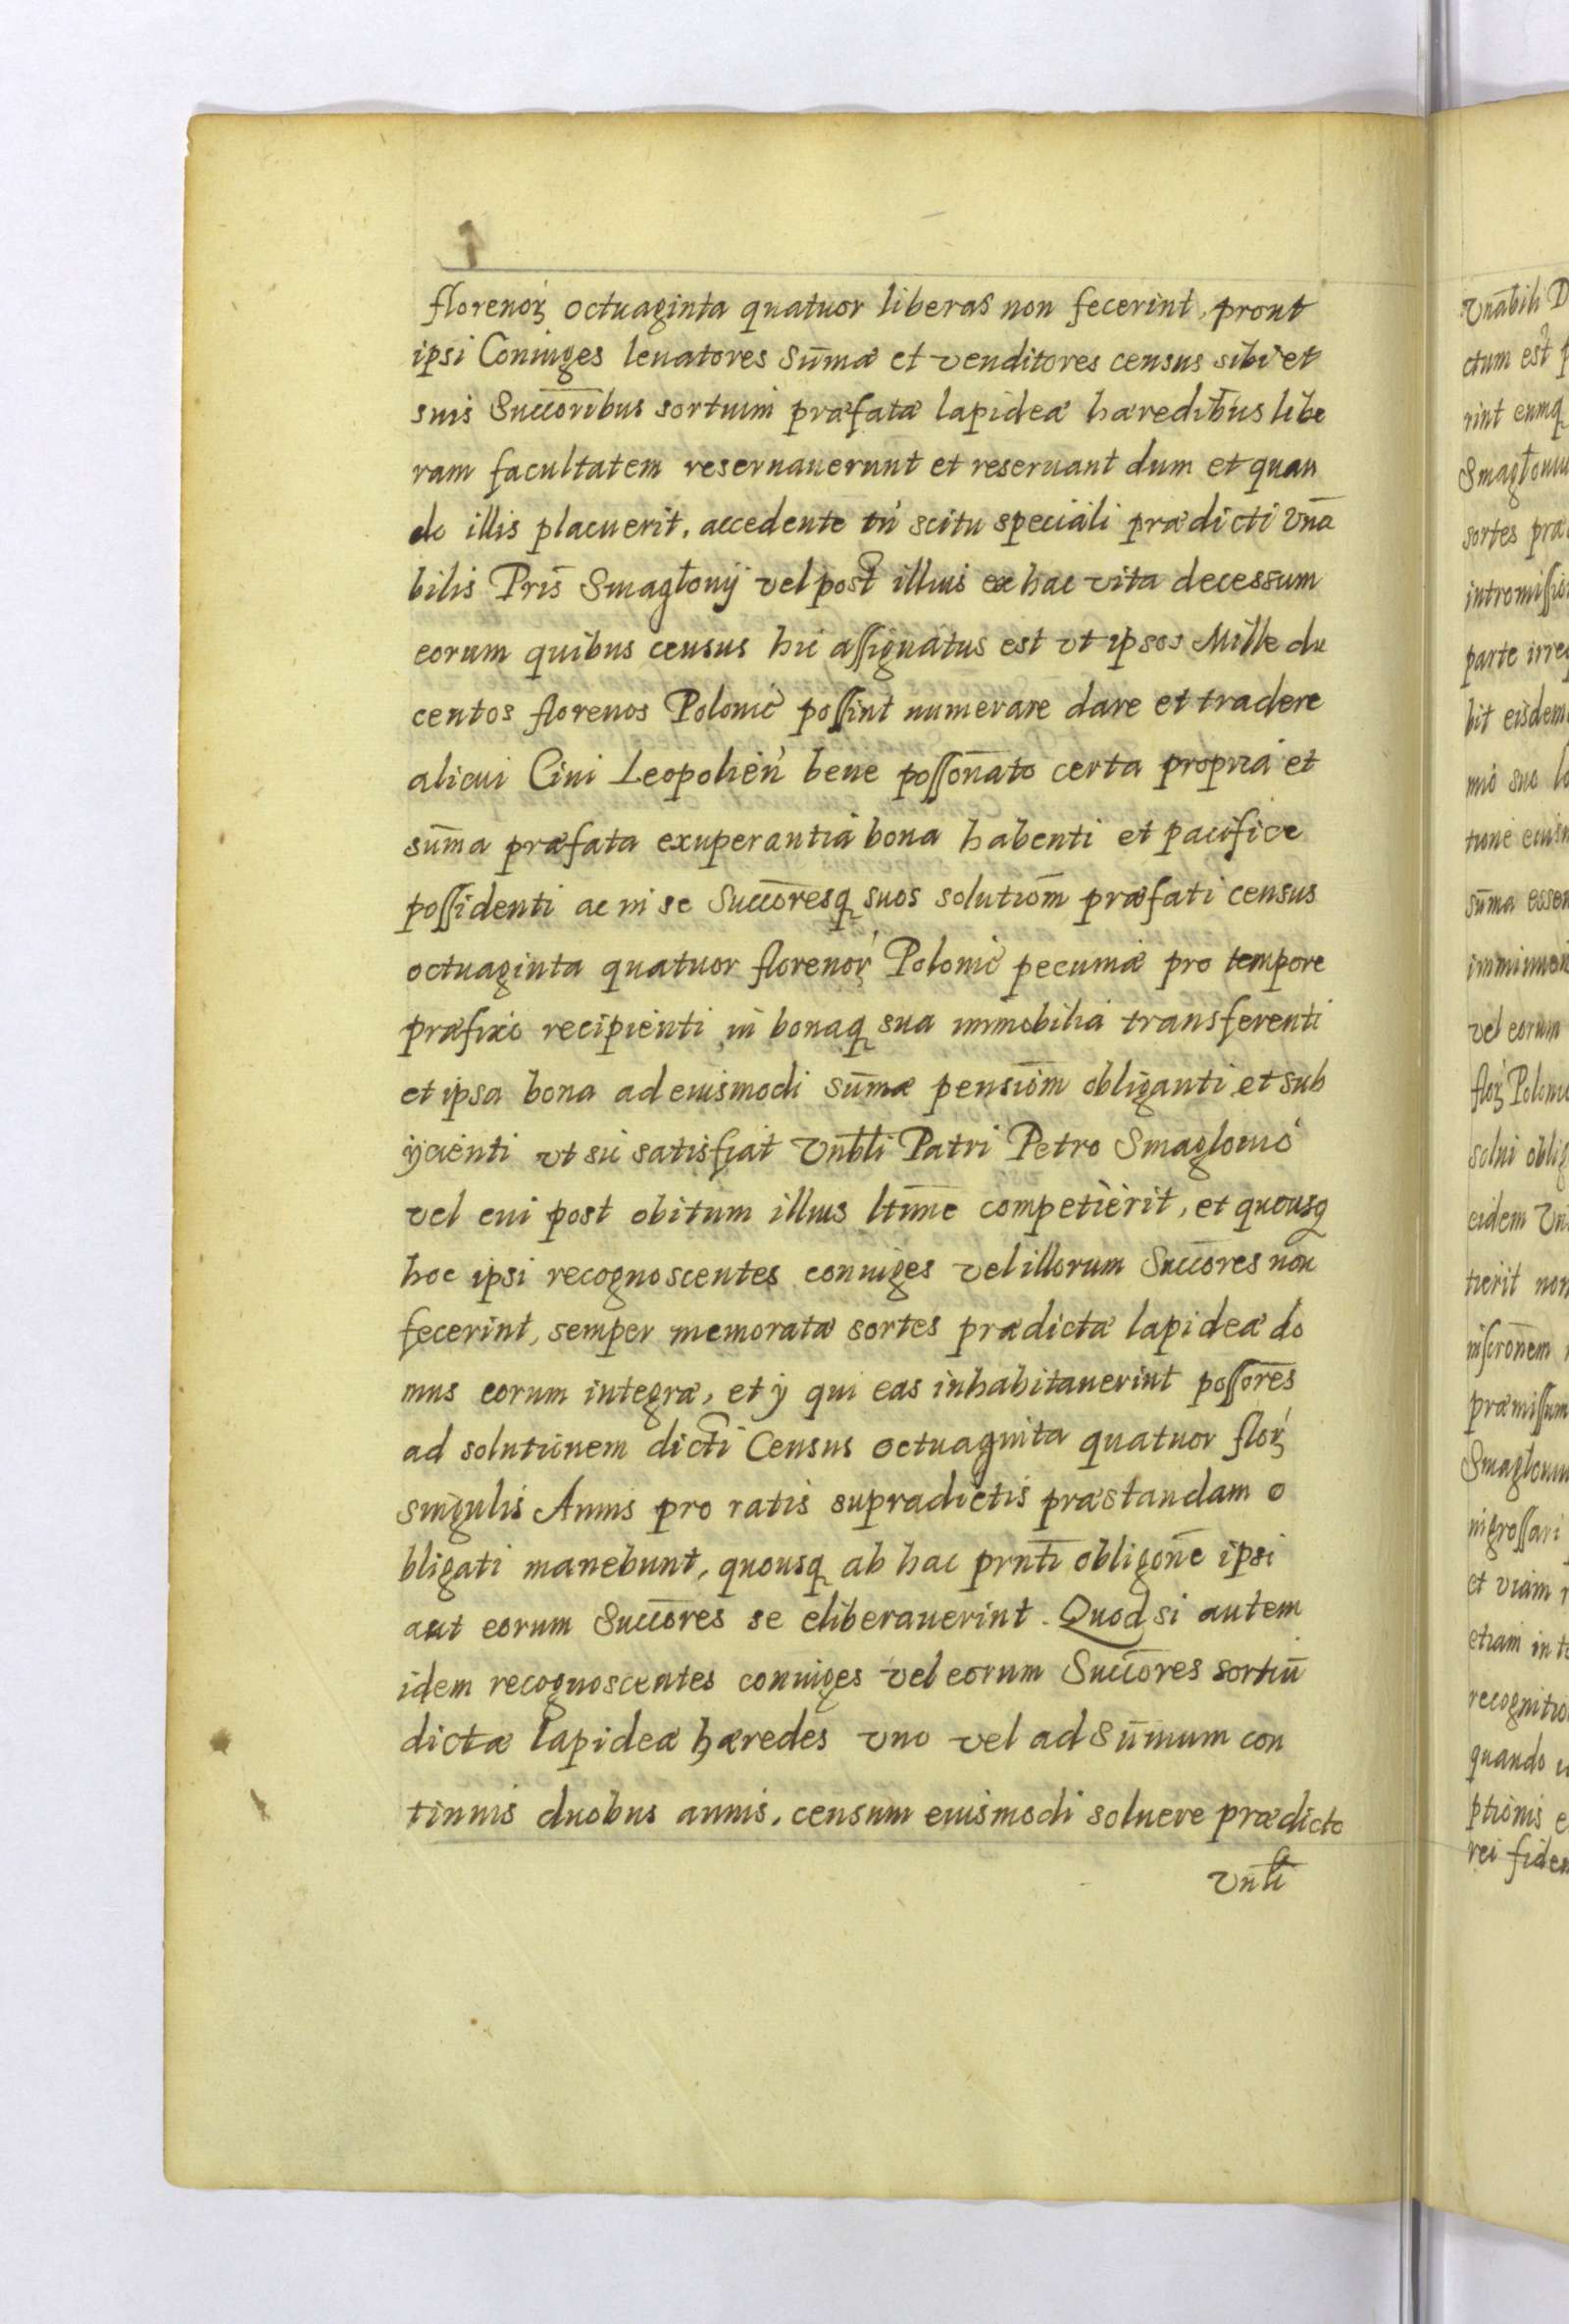 florenoꝝ octuaginta quatuor liberas non fecerint, prout
ipsi Coniuges leuatores Sūmæ et venditores census sibi et
suis Succorībus sortium præfatæ lapideæ hæredibus libe
ram facultatem reseruauerunt et reseruant dum et quan
do illis placuerit, accedente tn̄ scitu speciali prædicti Vn̄a
bilis Pris̄ Smagłouij vel post illius ex hac vita decessum
eorum quibus census hic aſſignatus est vt ipsos Mille du
centos florenos Polonic̄ poſſint numerare dare et tradere
alicui Ciui Leopolien̄ bene poſſonāto certa propria et
sūma præfata exuperantia bona habenti et pacifice
poſſidenti ac in se Succoresq̄ suos solutiom̄ præfati census
octuaginta quatuor florenoꝝ Polonic̄ pecuniæ pro tempore
præfixo recipienti in bonaq̄ sua immobilia transferenti
et ipsa bona ad eiusmodi sūmæ pensiom̄ obliganti et sub
ÿcienti vt sic satisfiat Vnb̄li Patri Petro Smaglouio
vel cui post obitum illius ltīme competierit, et quousq̄
hoc ipsi recognoscentes coniuges vel illorum Succōres non
fecerint, semper memoratæ sortes prædictæ lapideæ do
mus eorum integræ, et ÿ qui eas inhabitauerint poſſorēs
ad solutionem dicti Census octuaginta quatuor floꝝ
singulis Annis pro ratis supradictis præstandam o
bligati manebunt, quousq̄ ab hac prn̄ti obligon̄e ipsi
aut eorum Succōres se eliberauerint. Quod si autem
idem recognoscentes coniuges vel eorum Succōres sortiū
dictæ lapideæ hæredes vno vel ad Sūmum con
tinuis duobus annis, censum eiusmodi soluere prædicto
Vnb̄li
Vnābili
ctum est
rint eumq̄
Smagłouiu
sortes præ
intromiſſio
parte irre
bit eisdem
mio suo
tunc
sūma
imminuen
vel eorum
floꝝ Polonic
solui oblig
eidem Vn
tierit non
inscronem
præmiſſum
Smagłouiu
ingroſſari
et viam
etiam in
recognitio
quando
ptionis
rei fidem